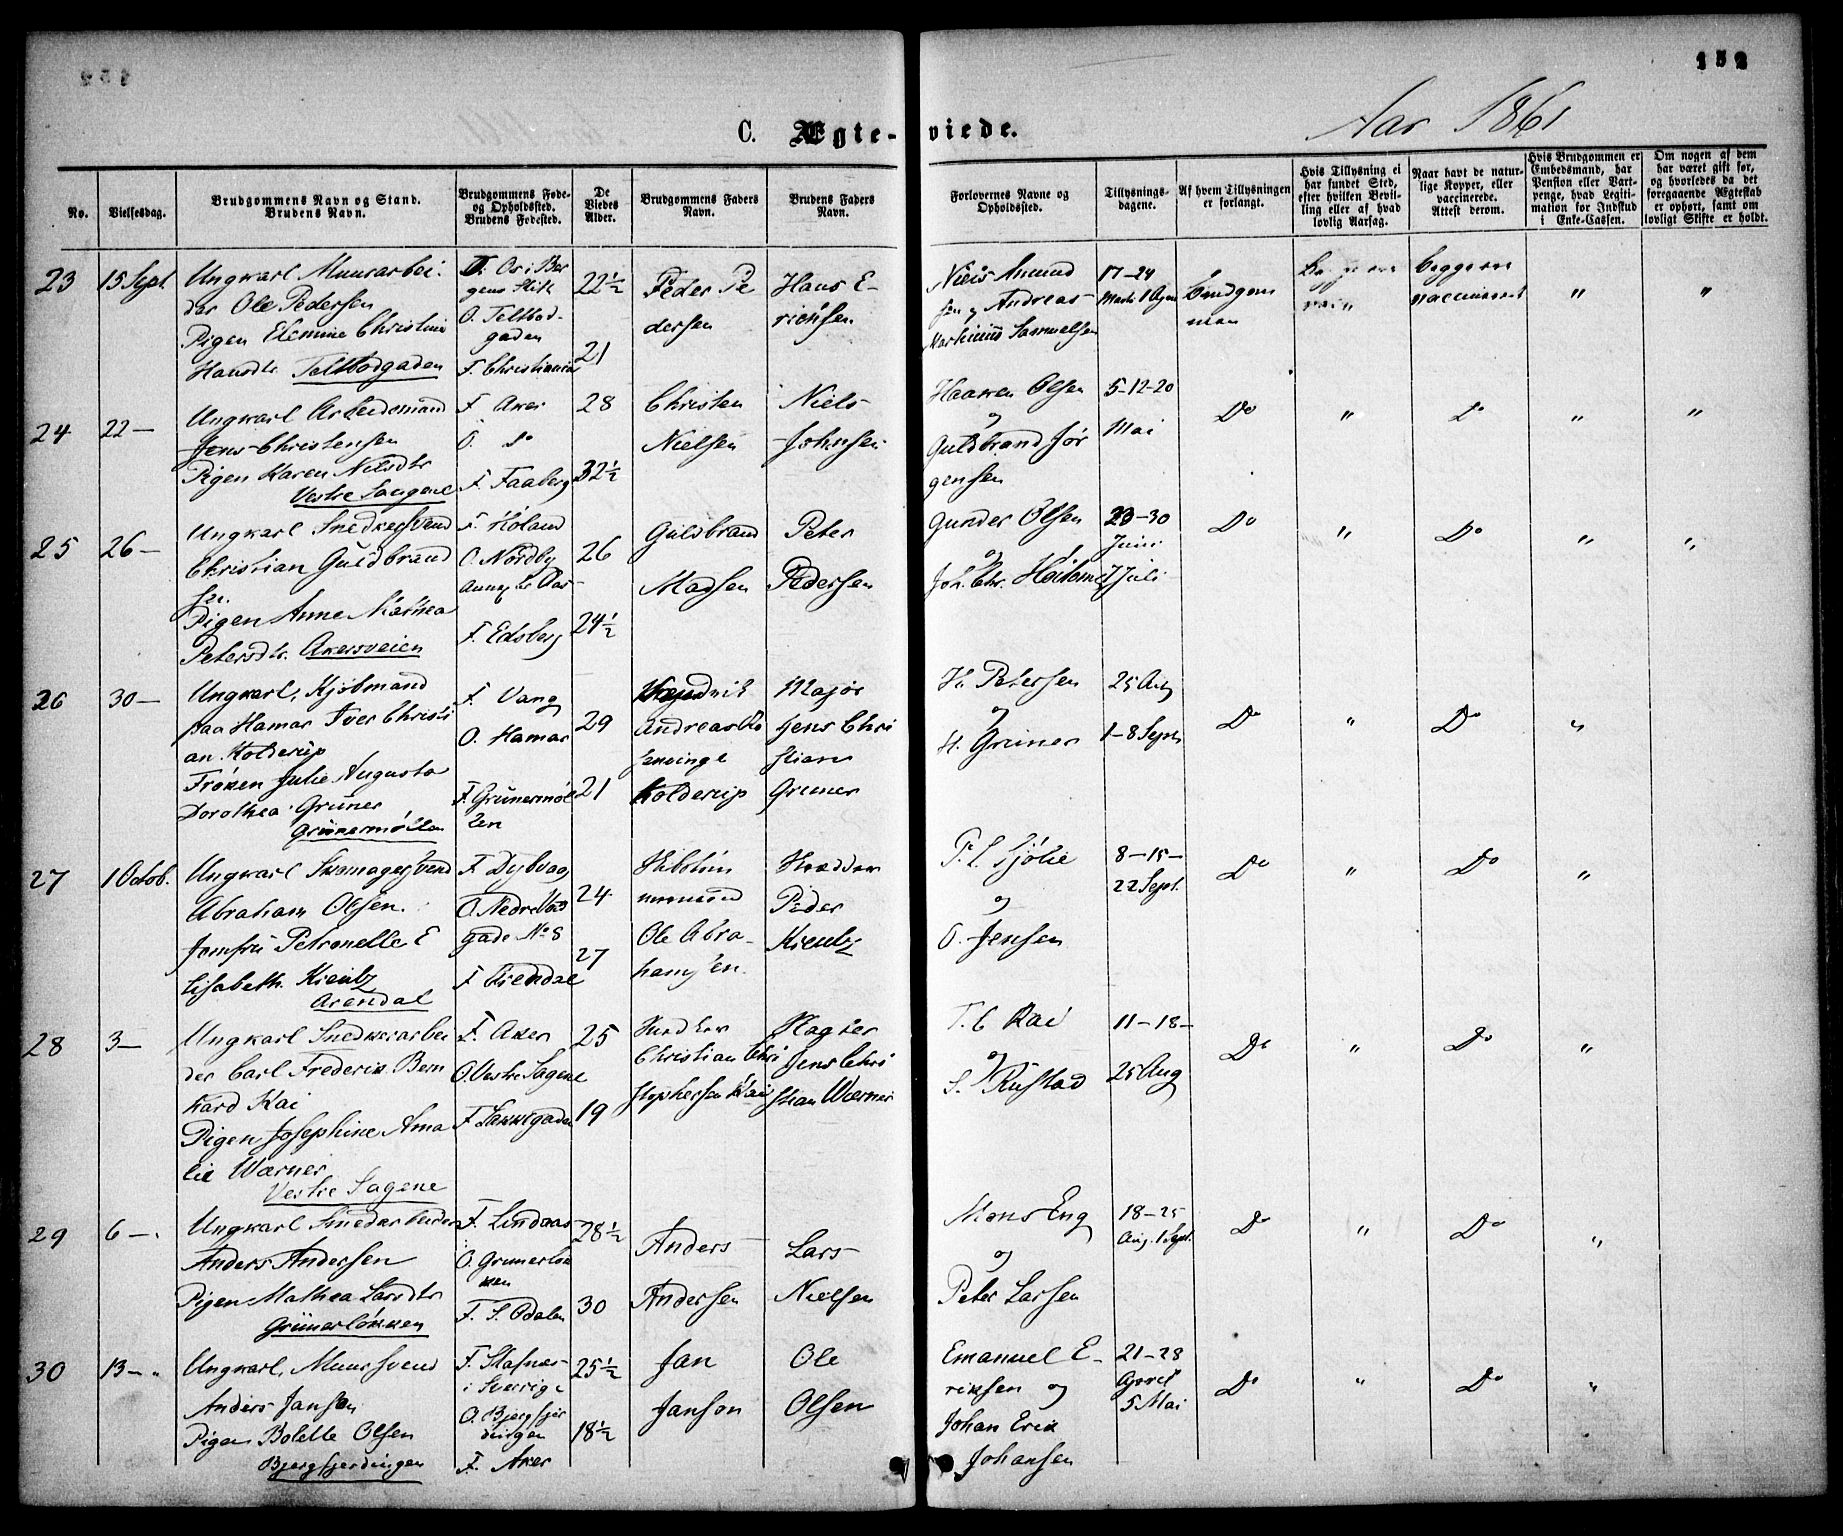 152
C. Ægte-viede.
Aar 1861
No.
Vielsesdag.
Brudgommens Navn og Stand.
Brudens Navn.
Brudgommens Føde-
og Opholdssted.
Brudens Fødested.
De
Viedes
Alder.
Brudgommens Faders
Navn.
Brudens Faders
Navn.
Forlovernes Navne og
Opholdssted.
Tillysnings-
dagene.
Af hvem Tillysningen
er forlangt.
Hvis Tillysning ei
har fundet Sted,
efter hvilken Bevil-
ling eller af hvad
lovlig Aarsag.
Naar havt de natur-
lige Kopper, eller
vaccinerede.
Attest derom.
Hvis Brudgommen er
Embedsmand, har
Pension eller Vart-
penge, hvad Legiti-
mation for Indskud
i Enke-Cassen.
Om nogen af dem
har været gift før,
og hvorledes da det
foregaaende Ægteskab
er ophørt, samt om
lovligt Skifte er holdt.
23
15 Sept.
Ungkarl Muurarbei-
der Ole Pedersen
Pigen Elemine Christine
Hansdtr Teltbodgaden
F. Os i Ber
gens Stift
O. Teltbod-
gaden
F. Christiania
22½
21
Peder Pe
dersen
Hans E-
richsen
Niels Amund
sen og Andreas
Martinius Samuelsen
17-24
Brudgom
man
begge
vaccineret
"
"
24
22 —
Ungkarl Arbeidsmand
Jens Christensen
Pigen Karen Nilsdtr
Vestre Saugene
F. Aker
O. do
F. Faaberg
28
32½
Christen
Nielsen
Niels
Johnsen
Haaken Olsen
og
Guldbrand Jør
gensen
5-12-20
Mai
Do
"
Do
"
"
25
26 —
Ungkarl Snedkersvend
Christian Guldbrand
sen.
Pigen Anne Mathea
Petersdtr. Akersveien
F. Høland
O. Nordby
F. Edsberg
26
24½
Guldbrand
Madsen
Peter
Pedersen
Gunder Olsen
og
Joh. Chr.
23-30
Juni
7 Juli
Do
"
Do
"
"
26
30 —
Ungkarl, Kjøbmand
paa Hamar Iver Christi
an Kolderup
Frøken Julie Augusta
Dorothea Grüner
Grünermøllen
F. Vang
O. Hamar
F. Grünermøl
len
29
21
Andreas
Kolderup
Major
Jens Chri
stian
Gruner
H. Petersen
og
H. Gruner
25 Aug
1-8 Sept
Do
"
Do
"
27
1 Octob.
Ungkarl Skomagersvend
Abraham Olsen.
Jomfru Petronelle E
lisabeth Kreutz
Arendal
F. Dybvaag
O. Nedre Vold
gade No 8
F. Arendal
24
27
Ole Abra-
hamsen.
Skrædder
Peder
Kreutz
P. C. Sjølie
og
O. Jensen
8-15-
22 Sept.
Do
"
Do
"
28
3 —
Ungkarl Snedkerarbei
der Carl Frederik Bern
hard Kai
Pigen Josephine Ama
lie Wærner
Vestre Sagene
F. Aker
O. Vestre Sagene
F. Lakkegaden
25
19
Christian Chri
stophersen Kai
Jens Chri
stian Wærner
T. C Kai
og
S. Rustad
11-18-
25 Aug
Do
"
Do
"
29
6 —
Ungkarl Smedarbeider
Anders Andersen
Pigen Mathea Larsdtr
Grünerløkken
F. Lindaas
O. Grunerløk
ken
F. S. Odalen
28½
30
Anders
Andersen
Lars
Nielsen
Mons Eng
og
Peter Larsen
18-25
Aug. 1 Sept.
Do
"
Do
"
30
13 —
Ungkarl, Muursvend
Anders Janson
Pigen Bolette Olsen
Bjergfjerdingen
F. Stafnæs
i Sverrige
O. Bjergfjer
dingen
F. Aker
25½
18½
Jan
Janson
Ole
Olsen
Emanuel E-
riksen og
Johan Erik
Johansen
21-28
April
5 Mai
Do
"
Do
"